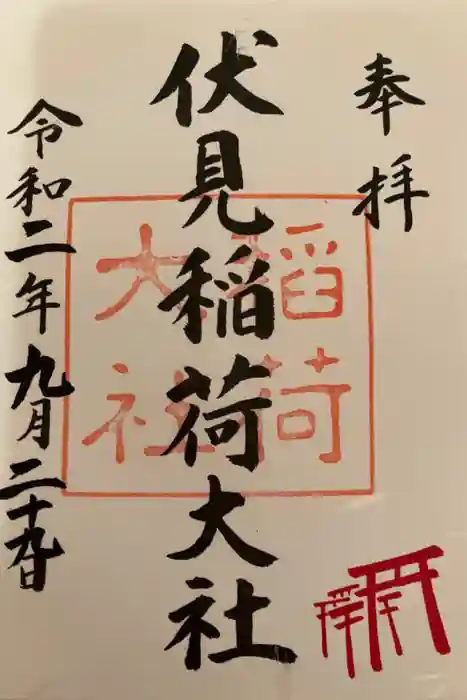 奉拝
伏見稲荷大社
稲荷
大社
令和二年九月二十九日